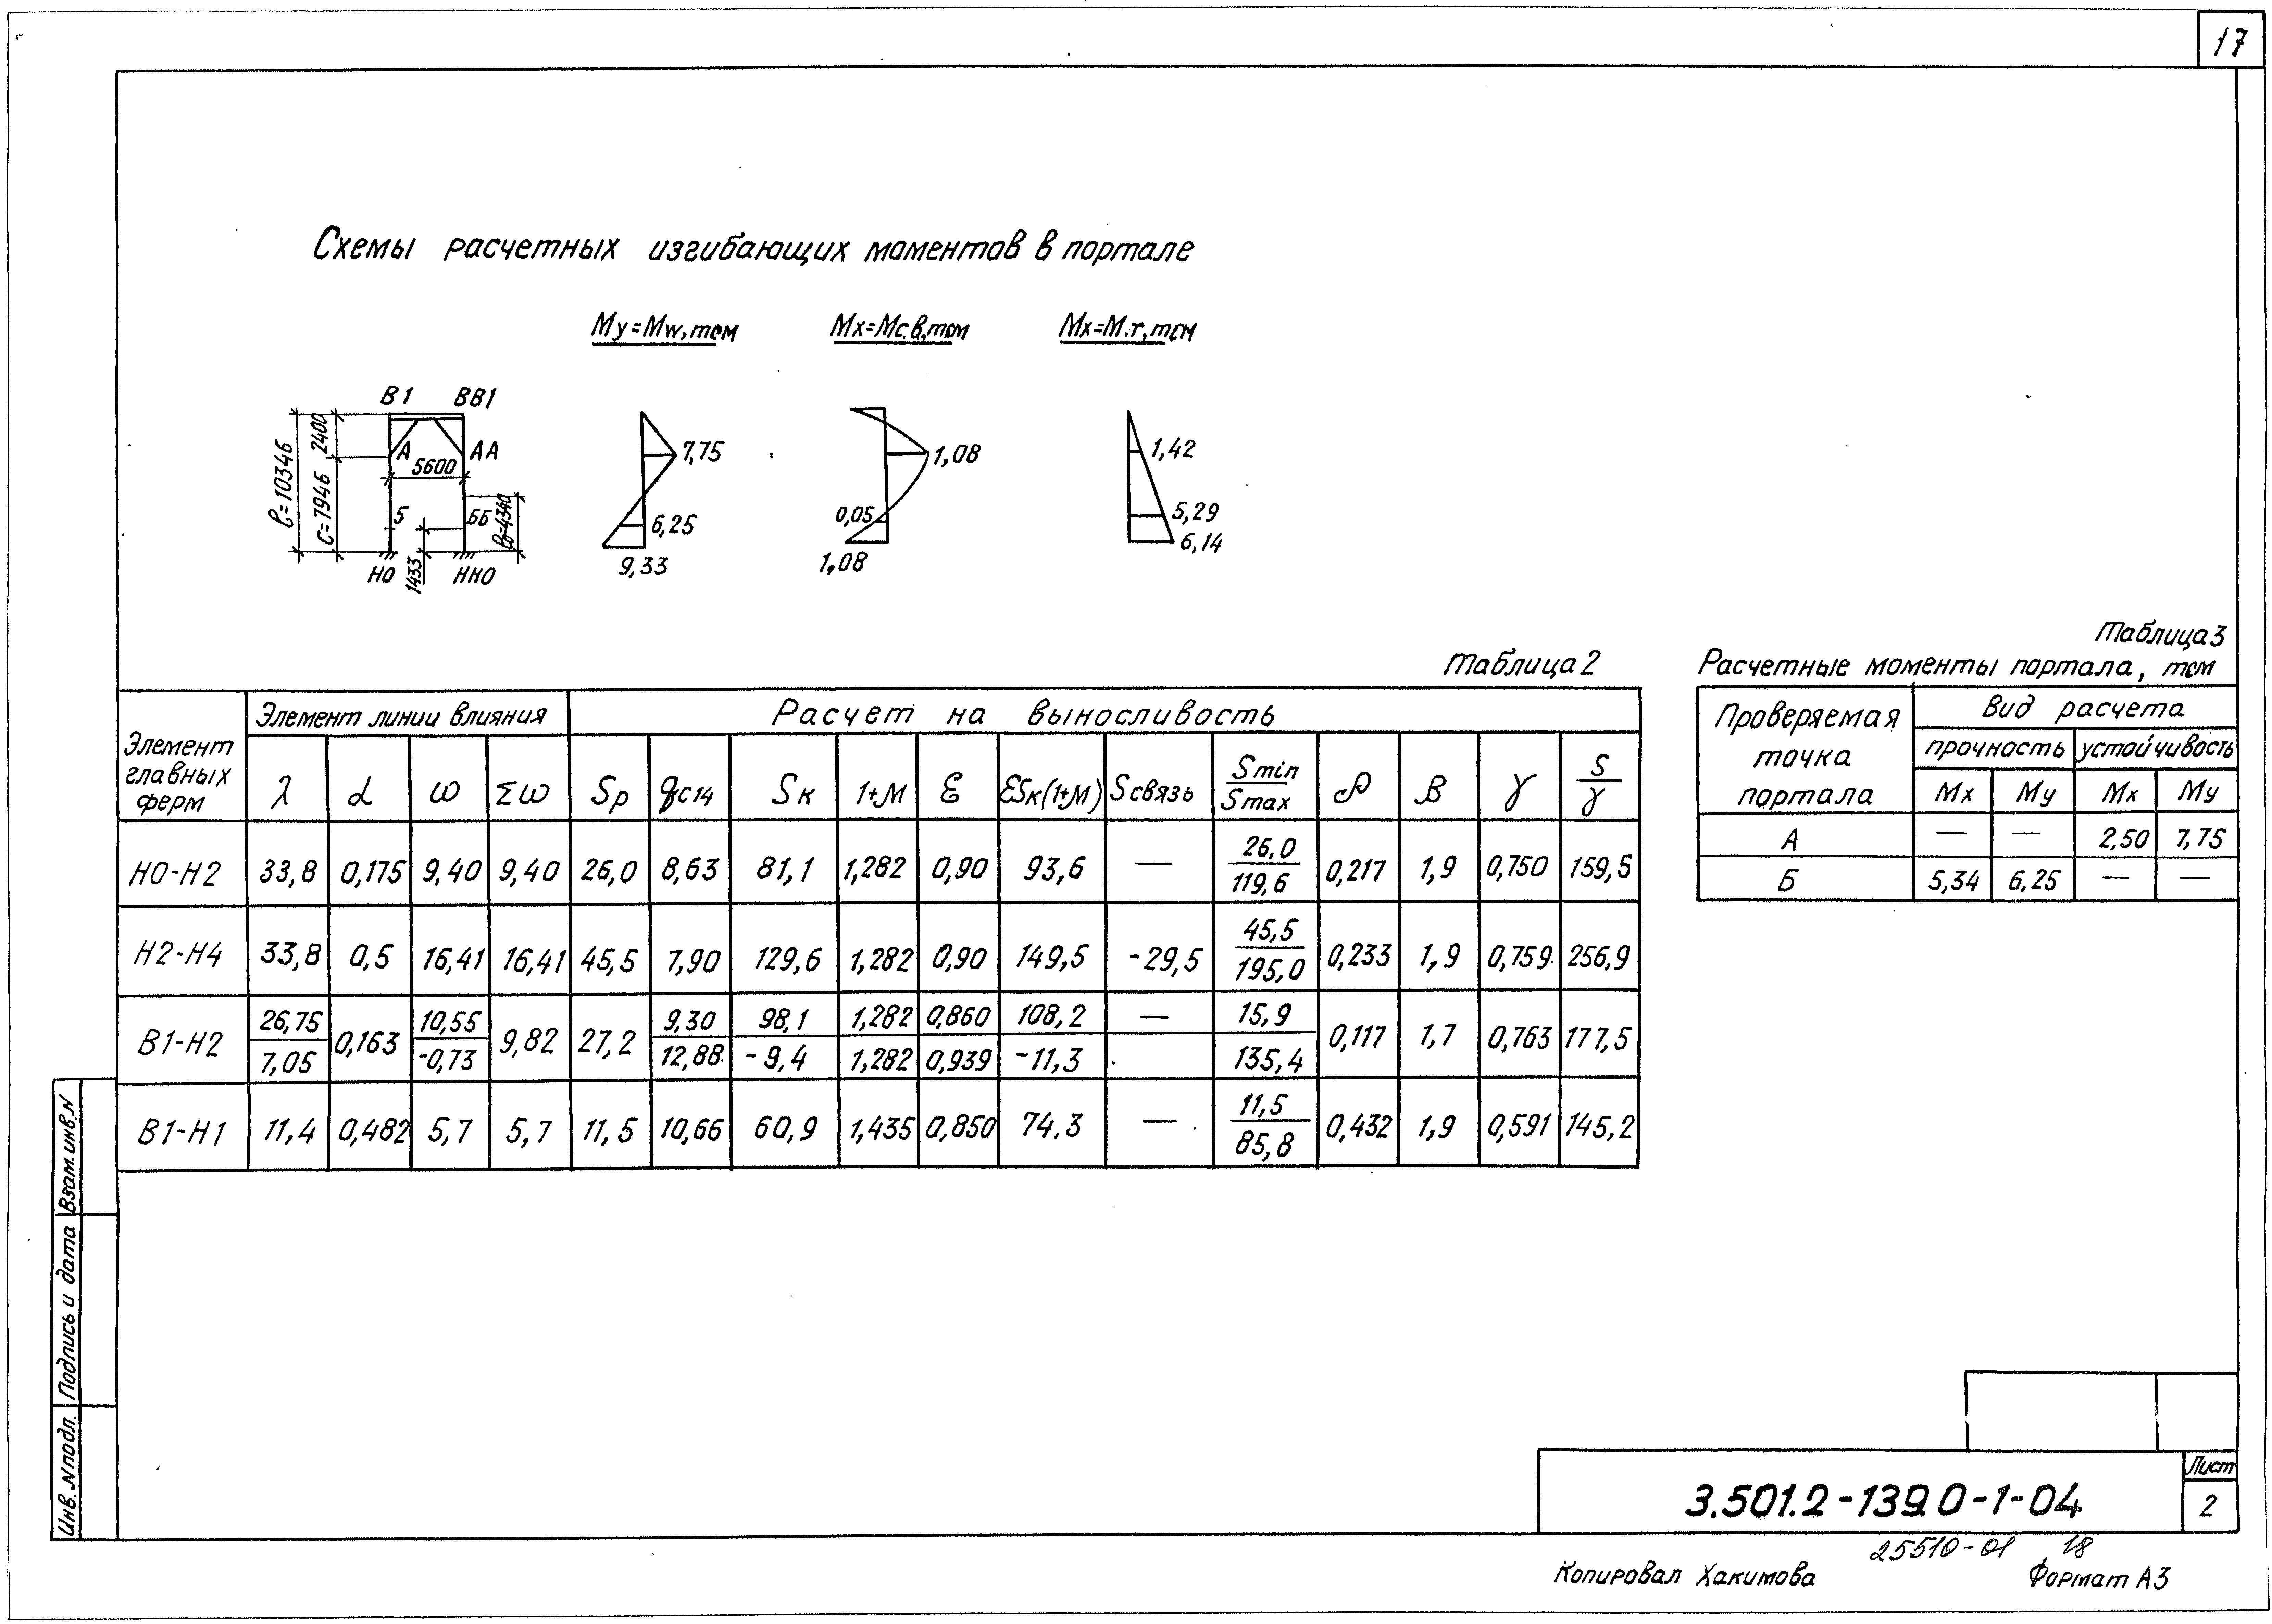 17
Схемы расчетных изгибающих моментов в портале
Му=Мw, тсм
Мх=Мс.в., тсм
Мх=М.т, тсм
В1 ВВ1
ℓ=10346
2400
С=7946
А АА
5600
Б ББ
ℓ₀=4340
1433
НО ННО
7,75
6,25
9,33
1,08
0,05
1,08
1,42
5,29
6,14
Таблица 2
Элемент главных ферм | Элемент линии влияния | Расчет на выносливость
λ | α | ω | Σω | Sр | qс14 | Sк | 1+М | ε | εSк(1+М) | Sсвязь | Smin/Smax | ρ | β | γ | S/γ
НО-Н2 | 33,8 | 0,175 | 9,40 | 9,40 | 26,0 | 8,63 | 81,1 | 1,282 | 0,90 | 93,6 | — | 26,0/119,6 | 0,217 | 1,9 | 0,750 | 159,5
Н2-Н4 | 33,8 | 0,5 | 16,41 | 16,41 | 45,5 | 7,90 | 129,6 | 1,282 | 0,90 | 149,5 | -29,5 | 45,5/195,0 | 0,233 | 1,9 | 0,759 | 256,9
В1-Н2 | 26,75/7,05 | 0,163 | 10,55/-0,73 | 9,82 | 27,2 | 9,30/12,88 | 98,1/-9,4 | 1,282/1,282 | 0,860/0,939 | 108,2/-11,3 | — | 15,9/135,4 | 0,117 | 1,7 | 0,763 | 177,5
В1-Н1 | 11,4 | 0,482 | 5,7 | 5,7 | 11,5 | 10,66 | 60,9 | 1,435 | 0,850 | 74.3 | — | 11,5/85,8 | 0,432 | 1,9 | 0,591 | 145,2
Таблица 3
Расчетные моменты портала, тсм
Проверяемая точка портала | Вид расчета
прочность | устойчивость
Мх | Му | Мх | Му
А | — | — | 2,50 | 7,75
Б | 5,34 | 6,25 | — | —
Инв. N подл. Подпись и дата Взам. инв. N
3.501.2-139.0-1-04
Лист
2
25510-01 18
Копировал Хакимова Формат А3